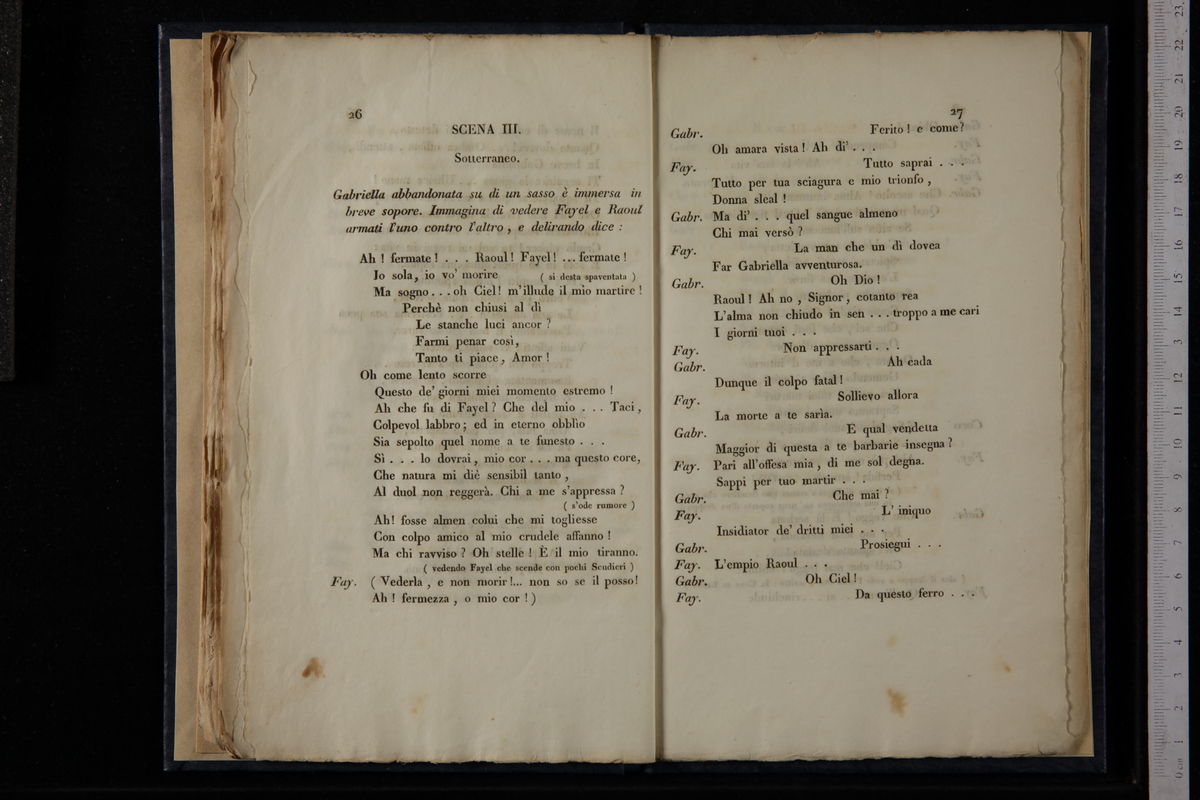 26
SCENA III.
Sotterraneo.
Gabriella abbandonata su di un sasso è immersa in
breve sopore. Immagina di vedere Fayel e Raoul
armati l'uno contro l'altro, e delirando dice :
Ah ! fermate ! . . . Raoul ! Fayel ! ... fermate !
Io sola, io vo' morire ( si desta spaventata )
Ma sogno . . . oh Ciel ! m'illude il mio martire !
Perchè non chiusi al dì
Le stanche luci ancor ?
Farmi penar così,
Tanto ti piace, Amor !
Oh come lento scorre
Questo de' giorni miei momento estremo !
Ah che fu di Fayel ? Che del mio . . . Taci,
Colpevol labbro ; ed in eterno obblìo
Sia sepolto quel nome a te funesto . . .
Sì . . . lo dovrai, mio cor . . . ma questo core,
Che natura mi diè sensibil tanto,
Al duol non reggerà. Chi a me s'appressa ?
( s'ode rumore )
Ah! fosse almen colui che mi togliesse
Con colpo amico al mio crudele affanno !
Ma chi ravviso ? Oh stelle ! È il mio tiranno.
( vedendo Fayel che scende con pochi Scudieri )
Fay. ( Vederla, e non morir !... non so se il posso!
Ah ! fermezza, o mio cor ! )
27
Gabr. Ferito ! e come ?
Oh amara vista ! Ah di' . . .
Fay. Tutto saprai . . .
Tutto per tua sciagura e mio trionfo,
Donna sleal !
Gabr. Ma di' . . . quel sangue almeno
Chi mai versò ?
Fay. La man che un dì dovea
Far Gabriella avventurosa.
Gabr. Oh Dio !
Raoul ! Ah no, Signor, cotanto rea
L'alma non chiudo in sen . . . troppo a me cari
I giorni tuoi . . .
Fay. Non appressarti . . .
Gabr. Ah cada
Dunque il colpo fatal !
Fay. Sollievo allora
La morte a te sarìa.
Gabr. E qual vendetta
Maggior di questa a te barbarie insegna ?
Fay. Pari all'offesa mia, di me sol degna.
Sappi per tuo martir . . .
Gabr. Che mai ?
Fay. L' iniquo
Insidiator de' dritti miei . . .
Gabr. Prosiegui . . .
Fay. L'empio Raoul . . .
Gabr. Oh Ciel !
Fay. Da questo ferro . . .
0 cm 1 2 3 4 5 6 7 8 9 10 11 12 13 14 15 16 17 18 19 20 21 22 23